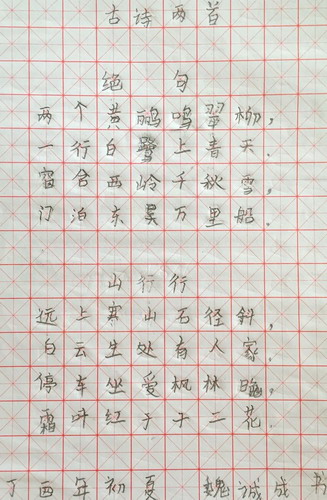 古诗两首
绝句
两个黄鹂鸣翠柳，
一行白鹭上青天.
窗含西岭千秋雪，
门泊东吴万里船.
山行行
远上寒山石径斜，
白云生处有人家.
停车坐爱枫林晚，
霜叶红于于二花.
丁酉年初夏 魏诚成书